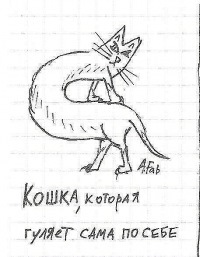 A.Fab
Кошка, которая
гуляет сама по себе